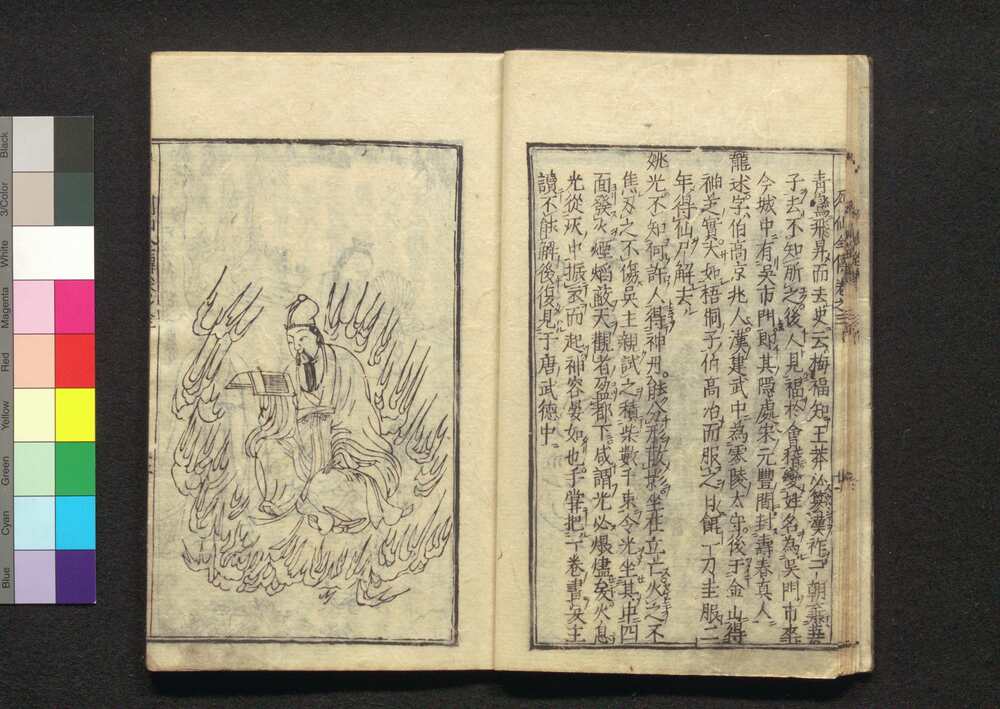 青鸞飛昇而去史云梅福知王莽必簒漢祚一朝棄妻
子去不知所之後人見福於會稽變姓名為吳門市卒
今城中有吳市門即其隱處宋元豐間封壽春真人
龍述字伯高京兆人漢建武中為零陵太守後于金山得
神芝實大如梧桐子伯高冶而服之日餌一刀圭服二
年得仙尸解去
姚光不知何許人得神丹能分形散影坐在立亡火之不
焦刃之不傷吳主親試之積柴數千束令光坐其中四
面發火煙焰蔽天觀者盈都下咸謂光必煨燼矣火息
光從灰中振衣而起神容晏如也手掌把一卷書吳主
讀不能解後復見于唐武德中
Black
3/Color
White
Magenta
Red
Yellow
Green
Cyan
Blue